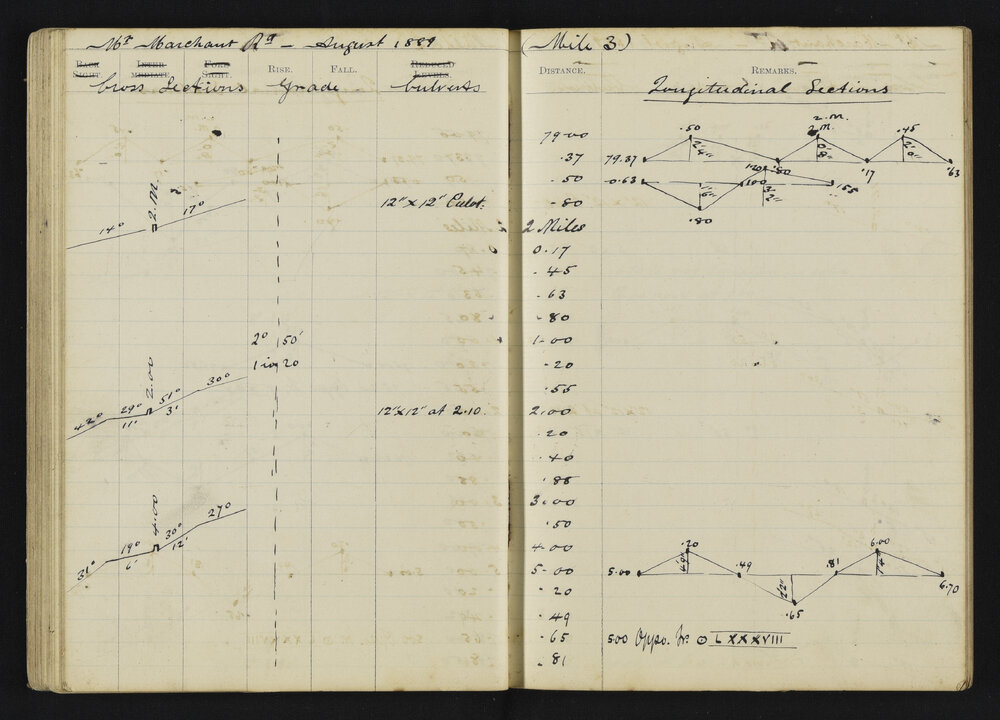 Mt Marchant Rd - August 1889
BACK SIGHT. INTER- MEDIATE FORE SIGHT. RISE. FALL. REDUCED LEVELS.
Cross Sections Grade Culverts
2.M.
14° 17°
12" x 12" Culvt.
2° 50'
1 in 20
2.00
42° 29° 51° 30°
11' 3'
12" x 12" at 2.10.
4.00
31° 19° 30° 27°
6' 12'
(Mile 3)
DISTANCE. REMARKS.
Longitudinal Sections
79.00
.37
.50
.80
2 Miles
0.17
.45
.63
.80
1.00
.20
.55
2.00
.20
.40
.88
3.00
.50
4.00
5.00
.20
.49
.65
.81
2.M.
.50 2.M. .45
79.37 2'4" 0'8" 2'0"
.80 .17 .63
0.63 1.20 1.00 1.55
.80
.20 6.00
5.00 .49 .81 6.70
.65
5.00 Oppo. Tr. ⊙ LXXXVIII